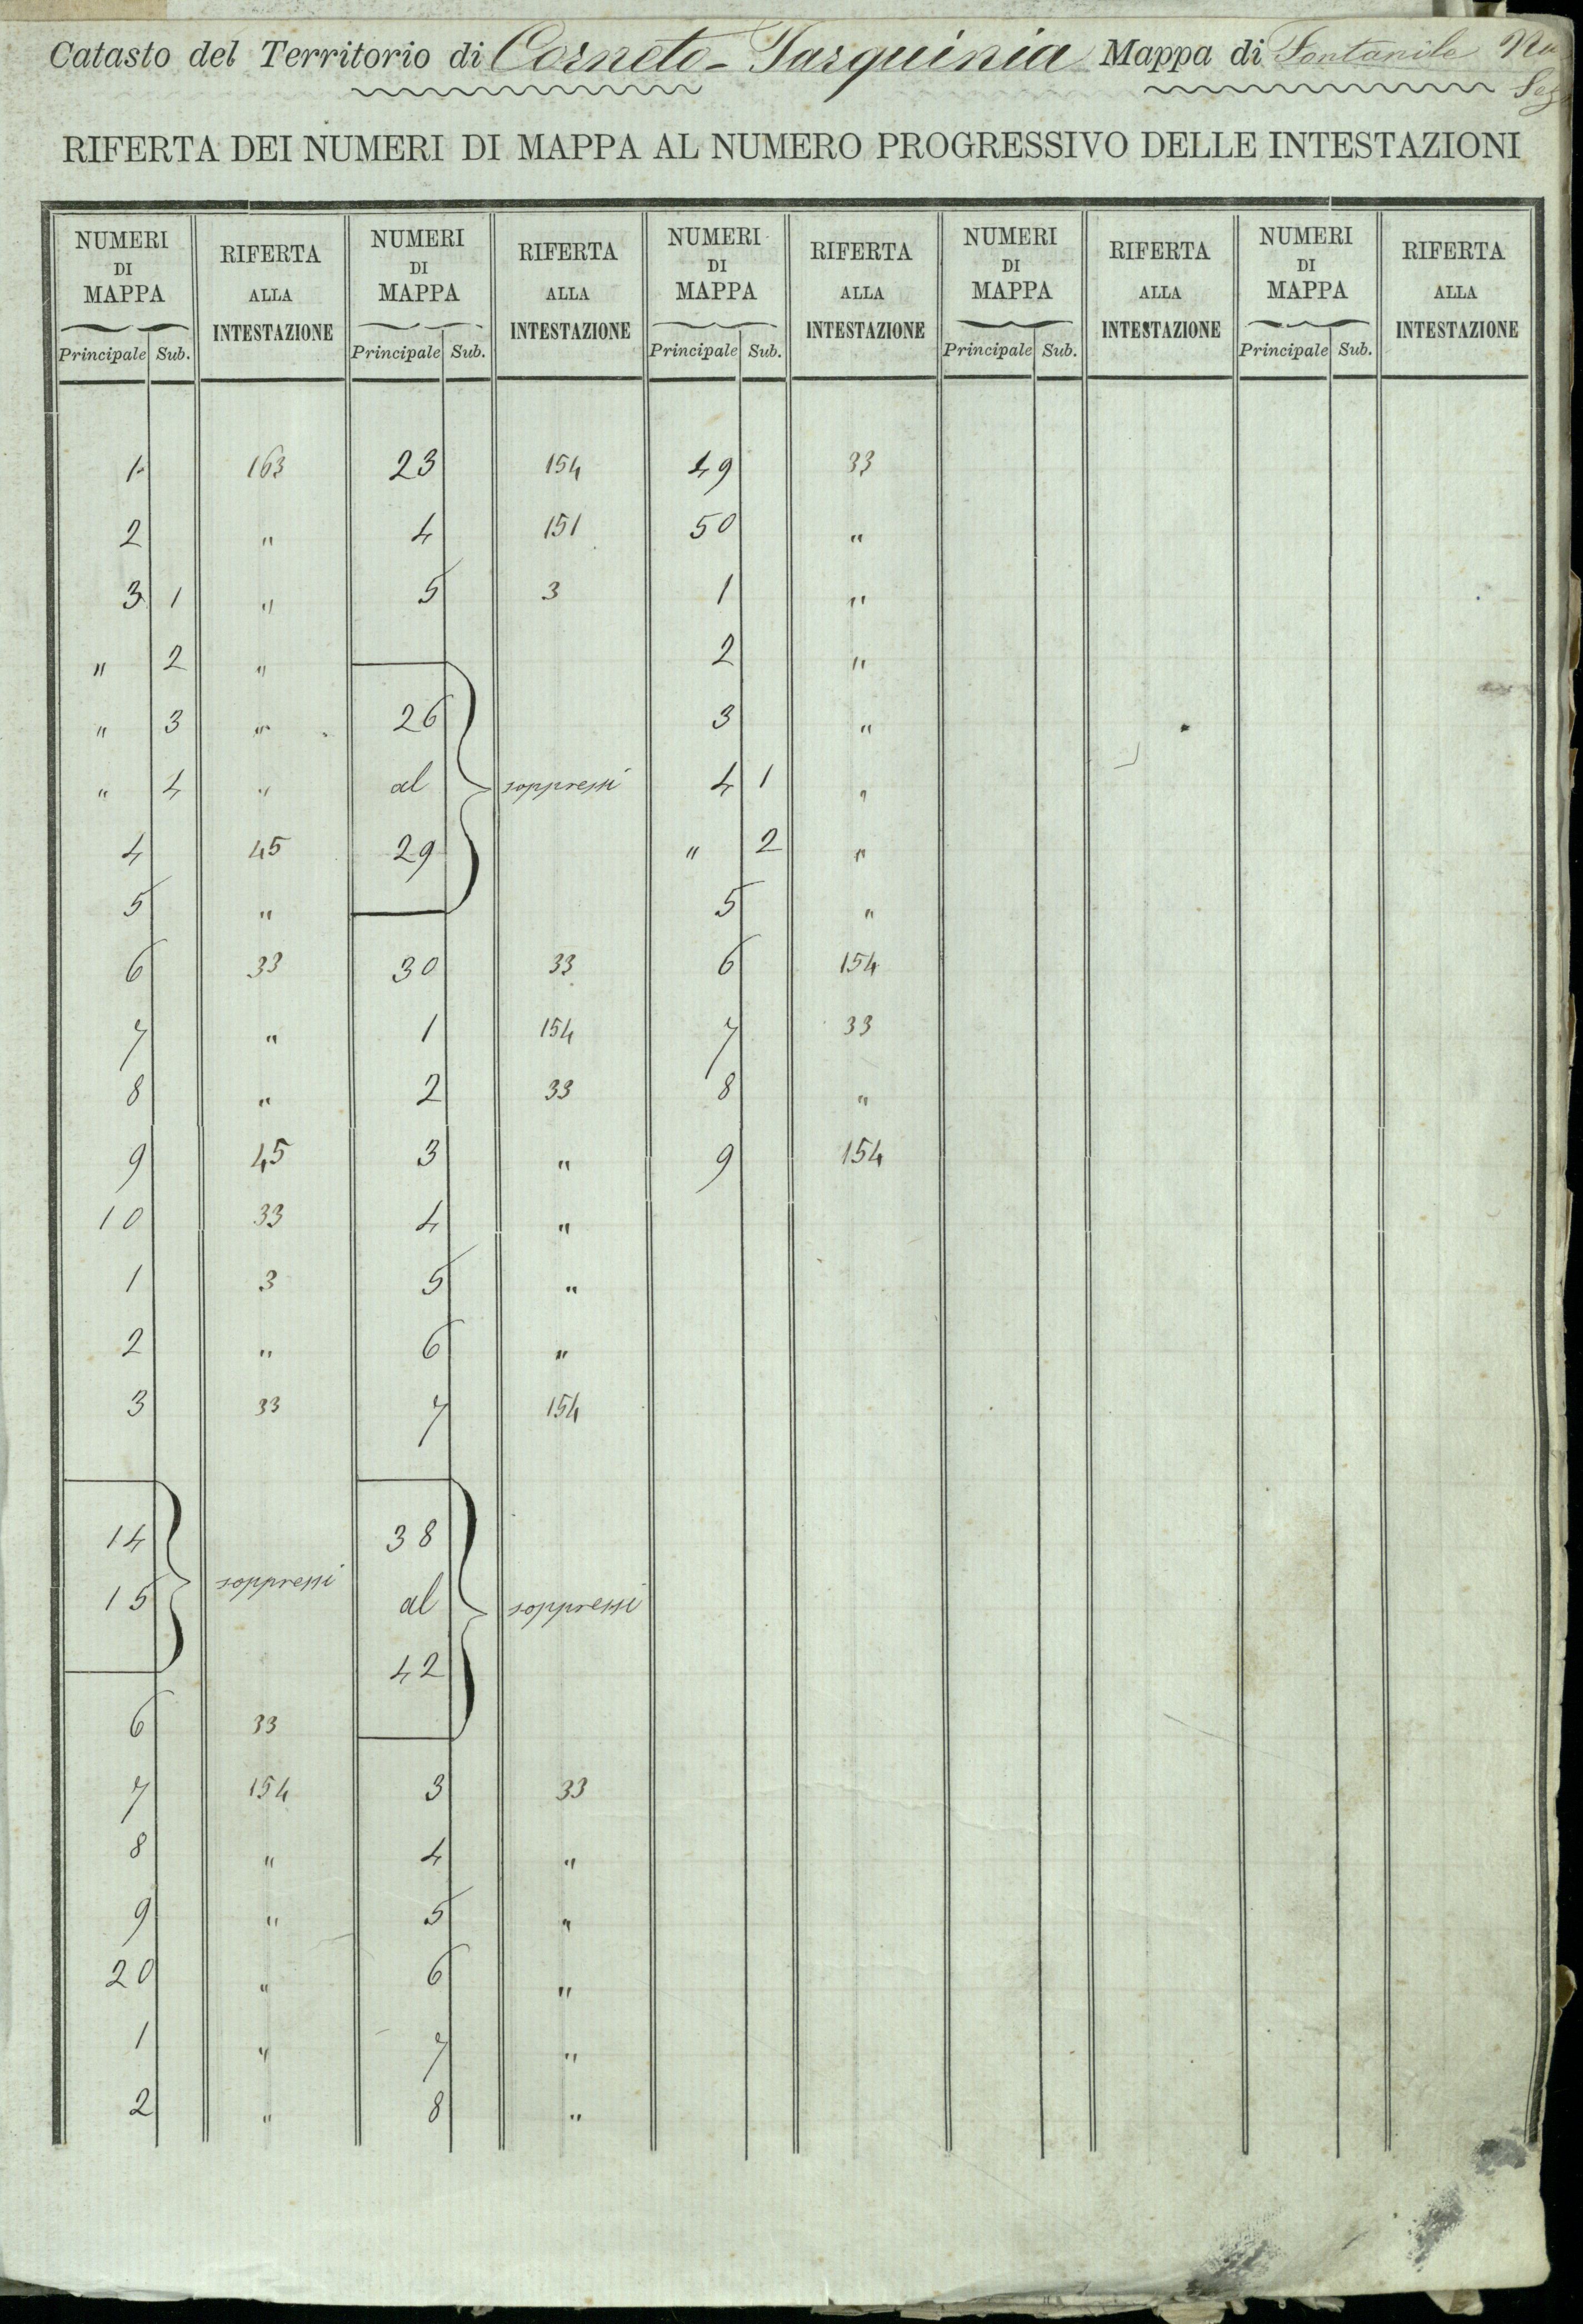 Catasto del Territorio di Corneto-Tarquinia Mappa di Fontanile
RIFERTA DEI NUMERI DI MAPPA AL NUMERO PROGRESSIVO DELLE INTESTAZIONI
NUMERI DI MAPPA RIFERTA ALLA INTESTAZIONE NUMERI DI MAPPA RIFERTA ALLA INTESTAZIONE NUMERI DI MAPPA RIFERTA ALLA INTESTAZIONE NUMERI DI MAPPA RIFERTA ALLA INTESTAZIONE NUMERI DI MAPPA RIFERTA ALLA INTESTAZIONE
Principale Sub. Principale Sub. Principale Sub. Principale Sub. Principale Sub.
1 163 23 154 49 33
2 " 4 151 50 "
3 1 " 5 3 1 "
" 2 " 2 "
" 3 " 26 3 "
" 4 " al soppressi 4 1 "
4 45 29 " 2 "
5 " 5 "
6 33 30 33 6 154
7 " 1 154 7 33
8 " 2 33 8 "
9 45 3 " 9 154
10 33 4 "
1 3 5 "
2 " 6 "
3 33 7 154
14 38
15 soppressi al soppressi
42
6 33
7 154 3 33
8 " 4 "
9 " 5 "
20 " 6 "
1 " 7 "
2 " 8 "